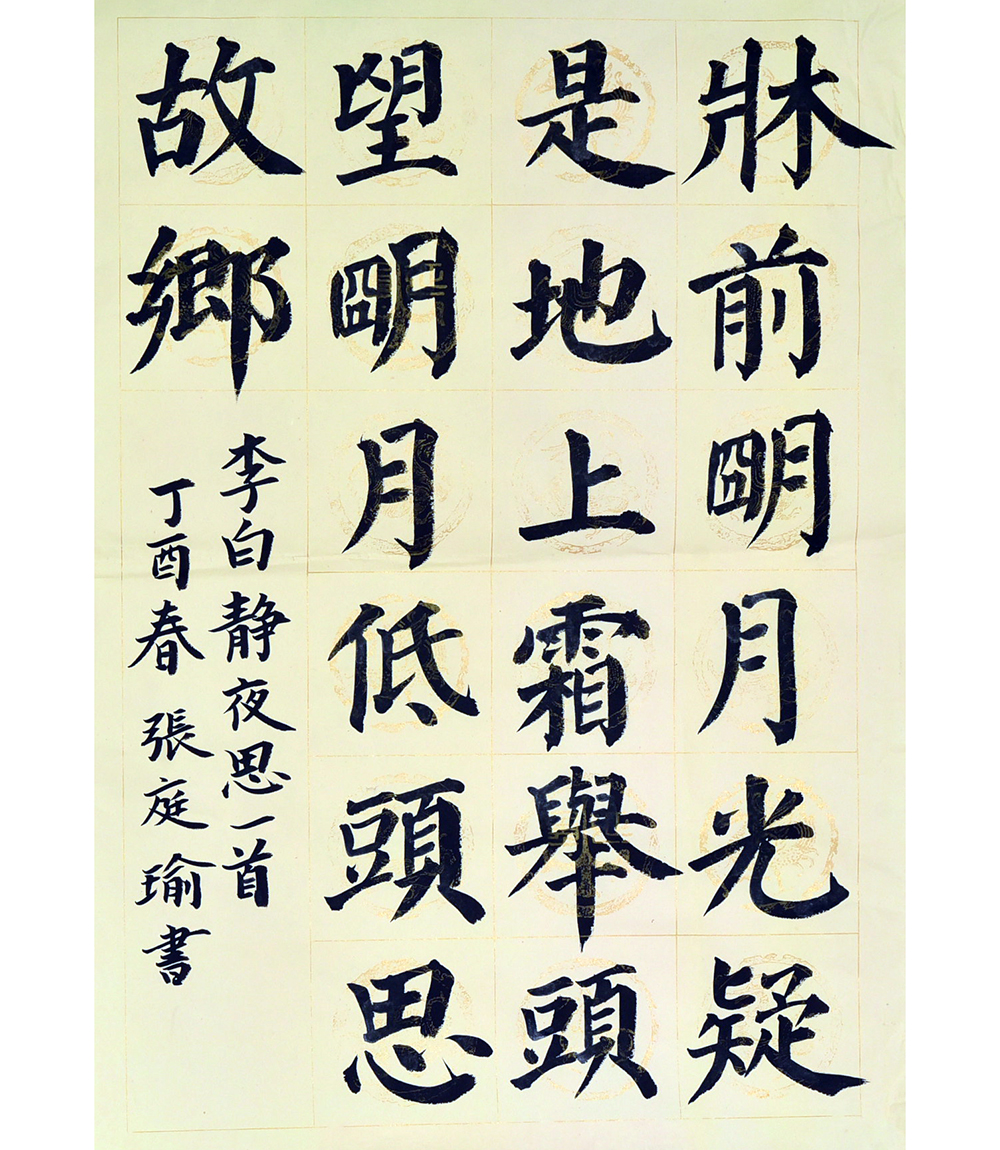 牀前朙月光疑
是地上霜舉頭
望朙月低頭思
故鄉
李白靜夜思一首
丁酉春 張庭瑜書